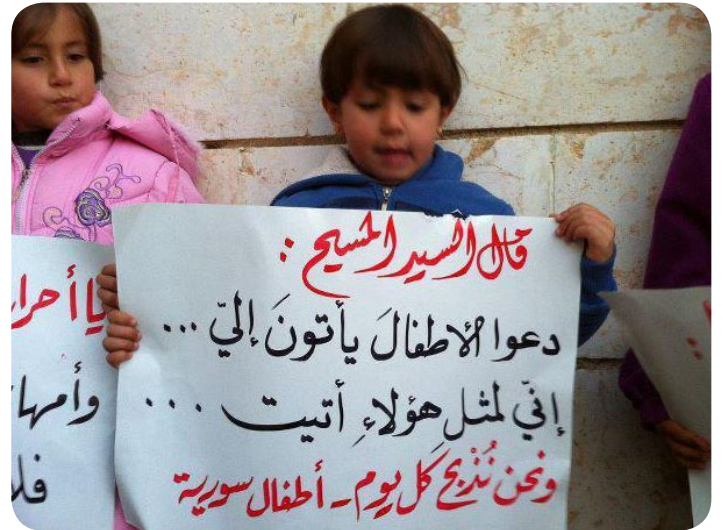 قال السيد المسيح :
دعوا الاطفالَ يأتونَ إليّ ...
إنّي لمثل هؤلاءِ أتيت ...
ونحن نُذبح كل يوم - أطفال سورية
يا أحرار
وأمها
فلا